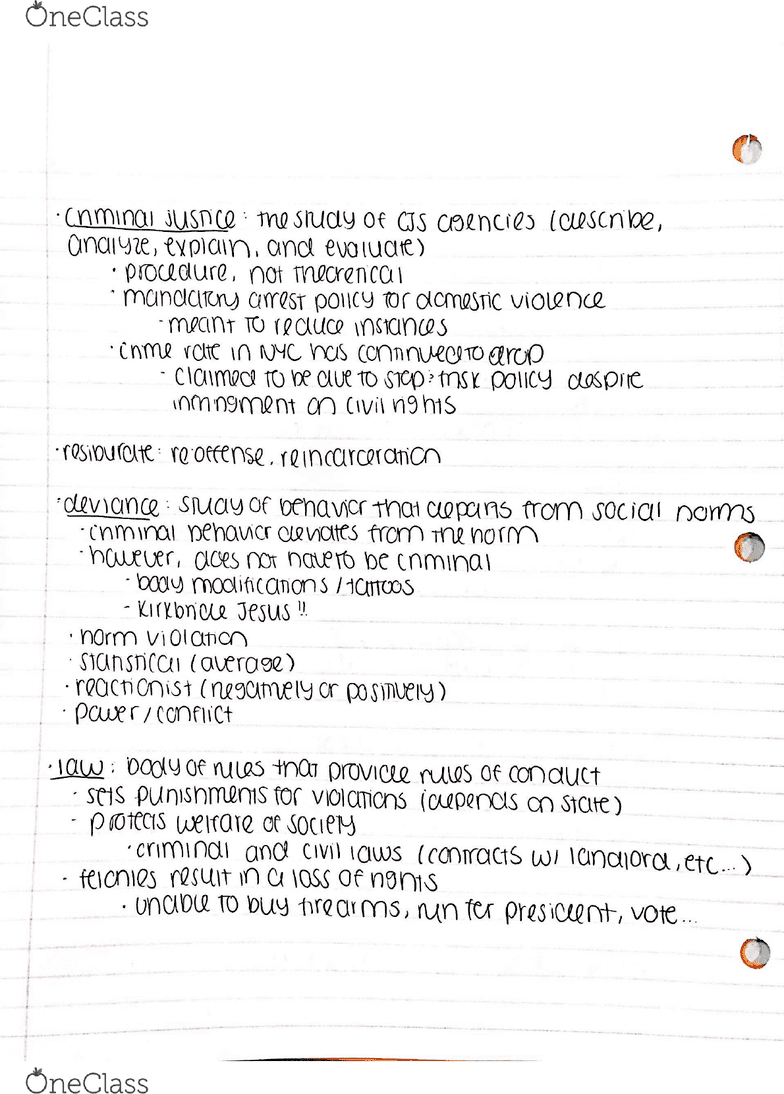 OneClass
· criminal justice : the study of CJS agencies (describe,
analyze, explain, and evaluate)
· procedure, not theoretical
· mandatory arrest policy for domestic violence
- meant to reduce instances
· crime rate in NYC has continued to drop
- claimed to be due to stop & frisk policy despite
infringment on civil rights
· : re-offense, reincarceration
· deviance : study of behavior that departs from social norms
- criminal behavior deviates from the norm
· however, does not have to be criminal
- body modifications / tattoos
- Kirkbride Jesus !!
· norm violation
· statistical (average)
· reactionist (negatively or positively)
· power / conflict
· law : body of rules that provide rules of conduct
· sets punishments for violations (depends on state)
- protects welfare of society
· criminal and civil laws (contracts w/ landlord, etc...)
- felonies result in a loss of rights
· unable to buy firearms, run for president, vote...
OneClass